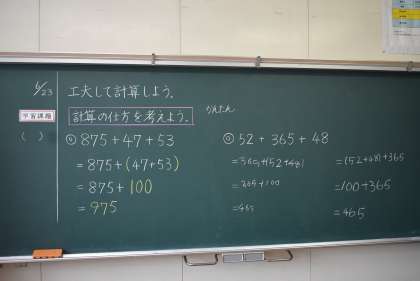 6/23
学習課題
( )
工夫して計算しよう。
計算の仕方を考えよう。
かんたん
① 875+47+53
=875+(47+53)
=875+100
=975
② 52+365+48
=365+(52+48)
=365+100
=465
=(52+48)+365
=100+365
=465